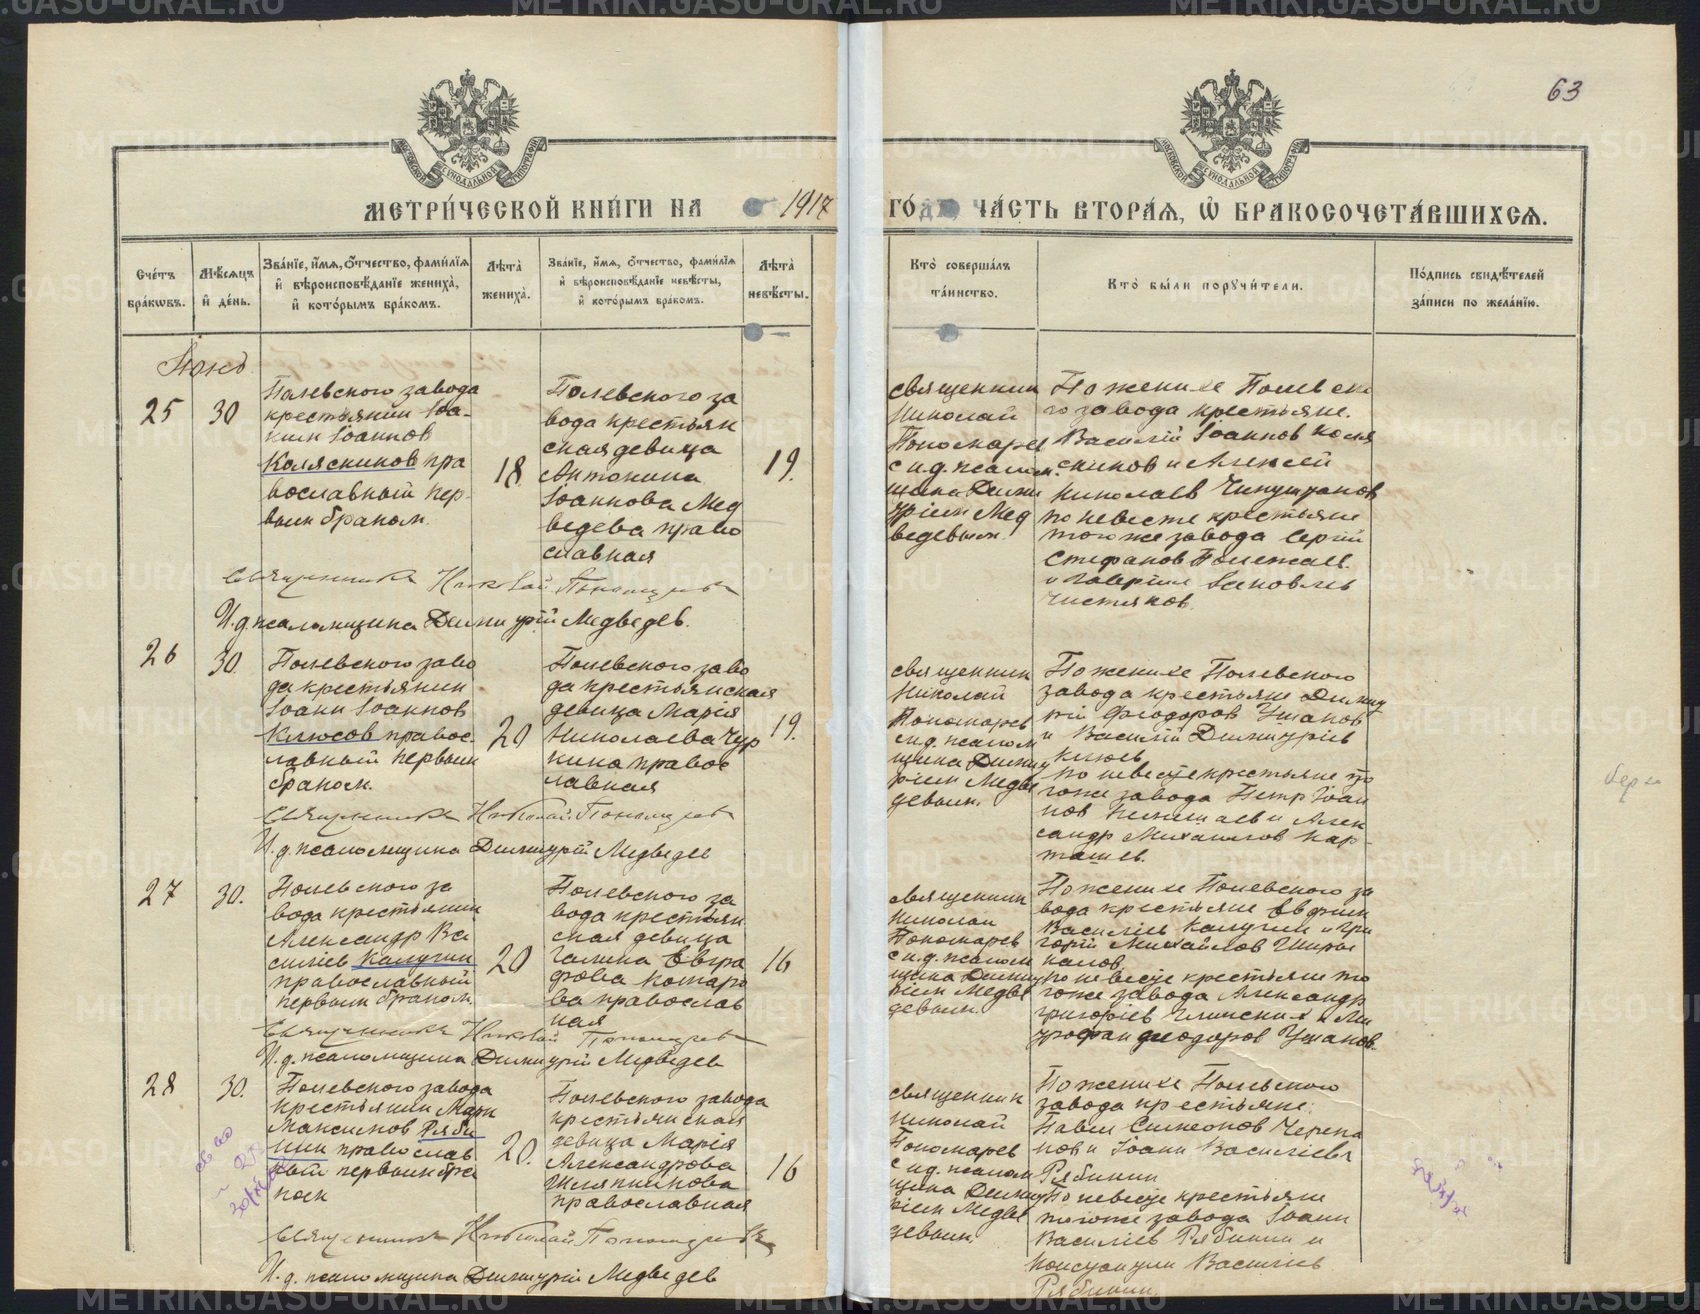 63
МЕТРИ́ЧЕСКОЙ КНИ́ГИ НА 1917 ГО́ДЪ ЧА́СТЬ ВТОРА́Я, Ѡ БРАКОСОЧЕТА́ВШИХСЯ.
Сче́тъ бра́кѡвъ.
Мѣ́сяцъ и҆ де́нь.
Зва́нїе, и҆́мя, ѻ҆́тчество, фами́лїя и҆ вѣроисповѣ́данїе жениха̀, и҆ кото́рымъ бра́комъ.
Лѣ́та̀ жениха̀.
Зва́нїе, и҆́мя, ѻ҆́тчество, фами́лїя и҆ вѣроисповѣ́данїе невѣ́сты, и҆ кото́рымъ бра́комъ.
Лѣ́та̀ невѣ́сты.
Кто̀ соверша́лъ та́инство.
Кто̀ бы́ли порꙋчи́тели.
По́дпись свидѣ́телей за́писи по жела́нїю.
25
30
Полевского завода
крестьянин Иоа-
ким Іоаннов
Колясников пра
вославный пер-
вым браком.
18.
Полевского за
вода крестьян
ская девица
Антонина
Іоаннова Мед
ведева право
славная
19.
священник
Николай
Пономарев
с и.д. псалом.
щика Дими
трием Мед
ведевым.
По женихе Полевск
го завода крестьяне.
Василий Іоаннов Коля
сников и Алексей
Николаев
по невесте крестьяне
того же завода Сергий
Стефанов
и Гавриил Яковлев
Чистяков.
Священникъ Николай Пономаревъ
И.д. псаломщика Димитрій Медведев.
26
30.
Полевского заво
да крестьянин
Іоанн Іоаннов
Клюсов правос
лавный первым
браком.
20
Полевского заво
да крестьянская
девица Марія
Николаева Чур
кина правос
лавная
19.
священник
Николай
Пономарев
с и.д. псалом
щика Дими
трием Медве
девым.
По женихе Полевского
завода крестьяне Димит
рій Феодоров Ушаков
и Василий Димитріев
Клюев
по невесте крестьяне то
гоже завода Петр Іоан
нов и Алек
сандр Михаилов Кар-
ташев.
Священникъ Николай Пономаревъ
И.д. псаломщика Димитрій Медведев
27
30.
Полевского за
вода крестьянин
Александр Ва
силіев Калугин
православный
первым браком.
20
Полевского за
вода крестьян
ская девица
Галина Евгра
фова Комаро
ва православ
ная
16
священник
Николай
Пономарев
с и.д. псалом
щика Димит
рием Медве
девым.
По женихе Полевского за
вода крестьяне
Василіев Калугин и Гри
горій Михайлов
по невесте крестьяне то
гоже завода Александр
Григоріев и Ми
трофан Феодоров Ушаков.
Священникъ Николай Пономаревъ
И.д. псаломщика Димитрій Медведев
28
30.
Полевского завода
крестьянин Марк
Максимов Ряби
нин православ
ный первым бра
ком
20.
Полевского завода
крестьянская
девица Марія
Александрова
Шляпникова
православная
16
священник
Николай
Пономарев
с и.д. псалом
щика Димит
рием Медве
девым
По женихе Полевского
завода крестьяне:
Павел Симеонов Черепа
нов и Іоанн Василіев
Рябинин
По невесте крестьяне
тогоже завода Іоанн
Василіев Рябинин и
Василіев
Рябинин.
Священникъ Николай Пономаревъ
И.д. псаломщика Димитрій Медведев
METRIKI.GASO-URAL.RU